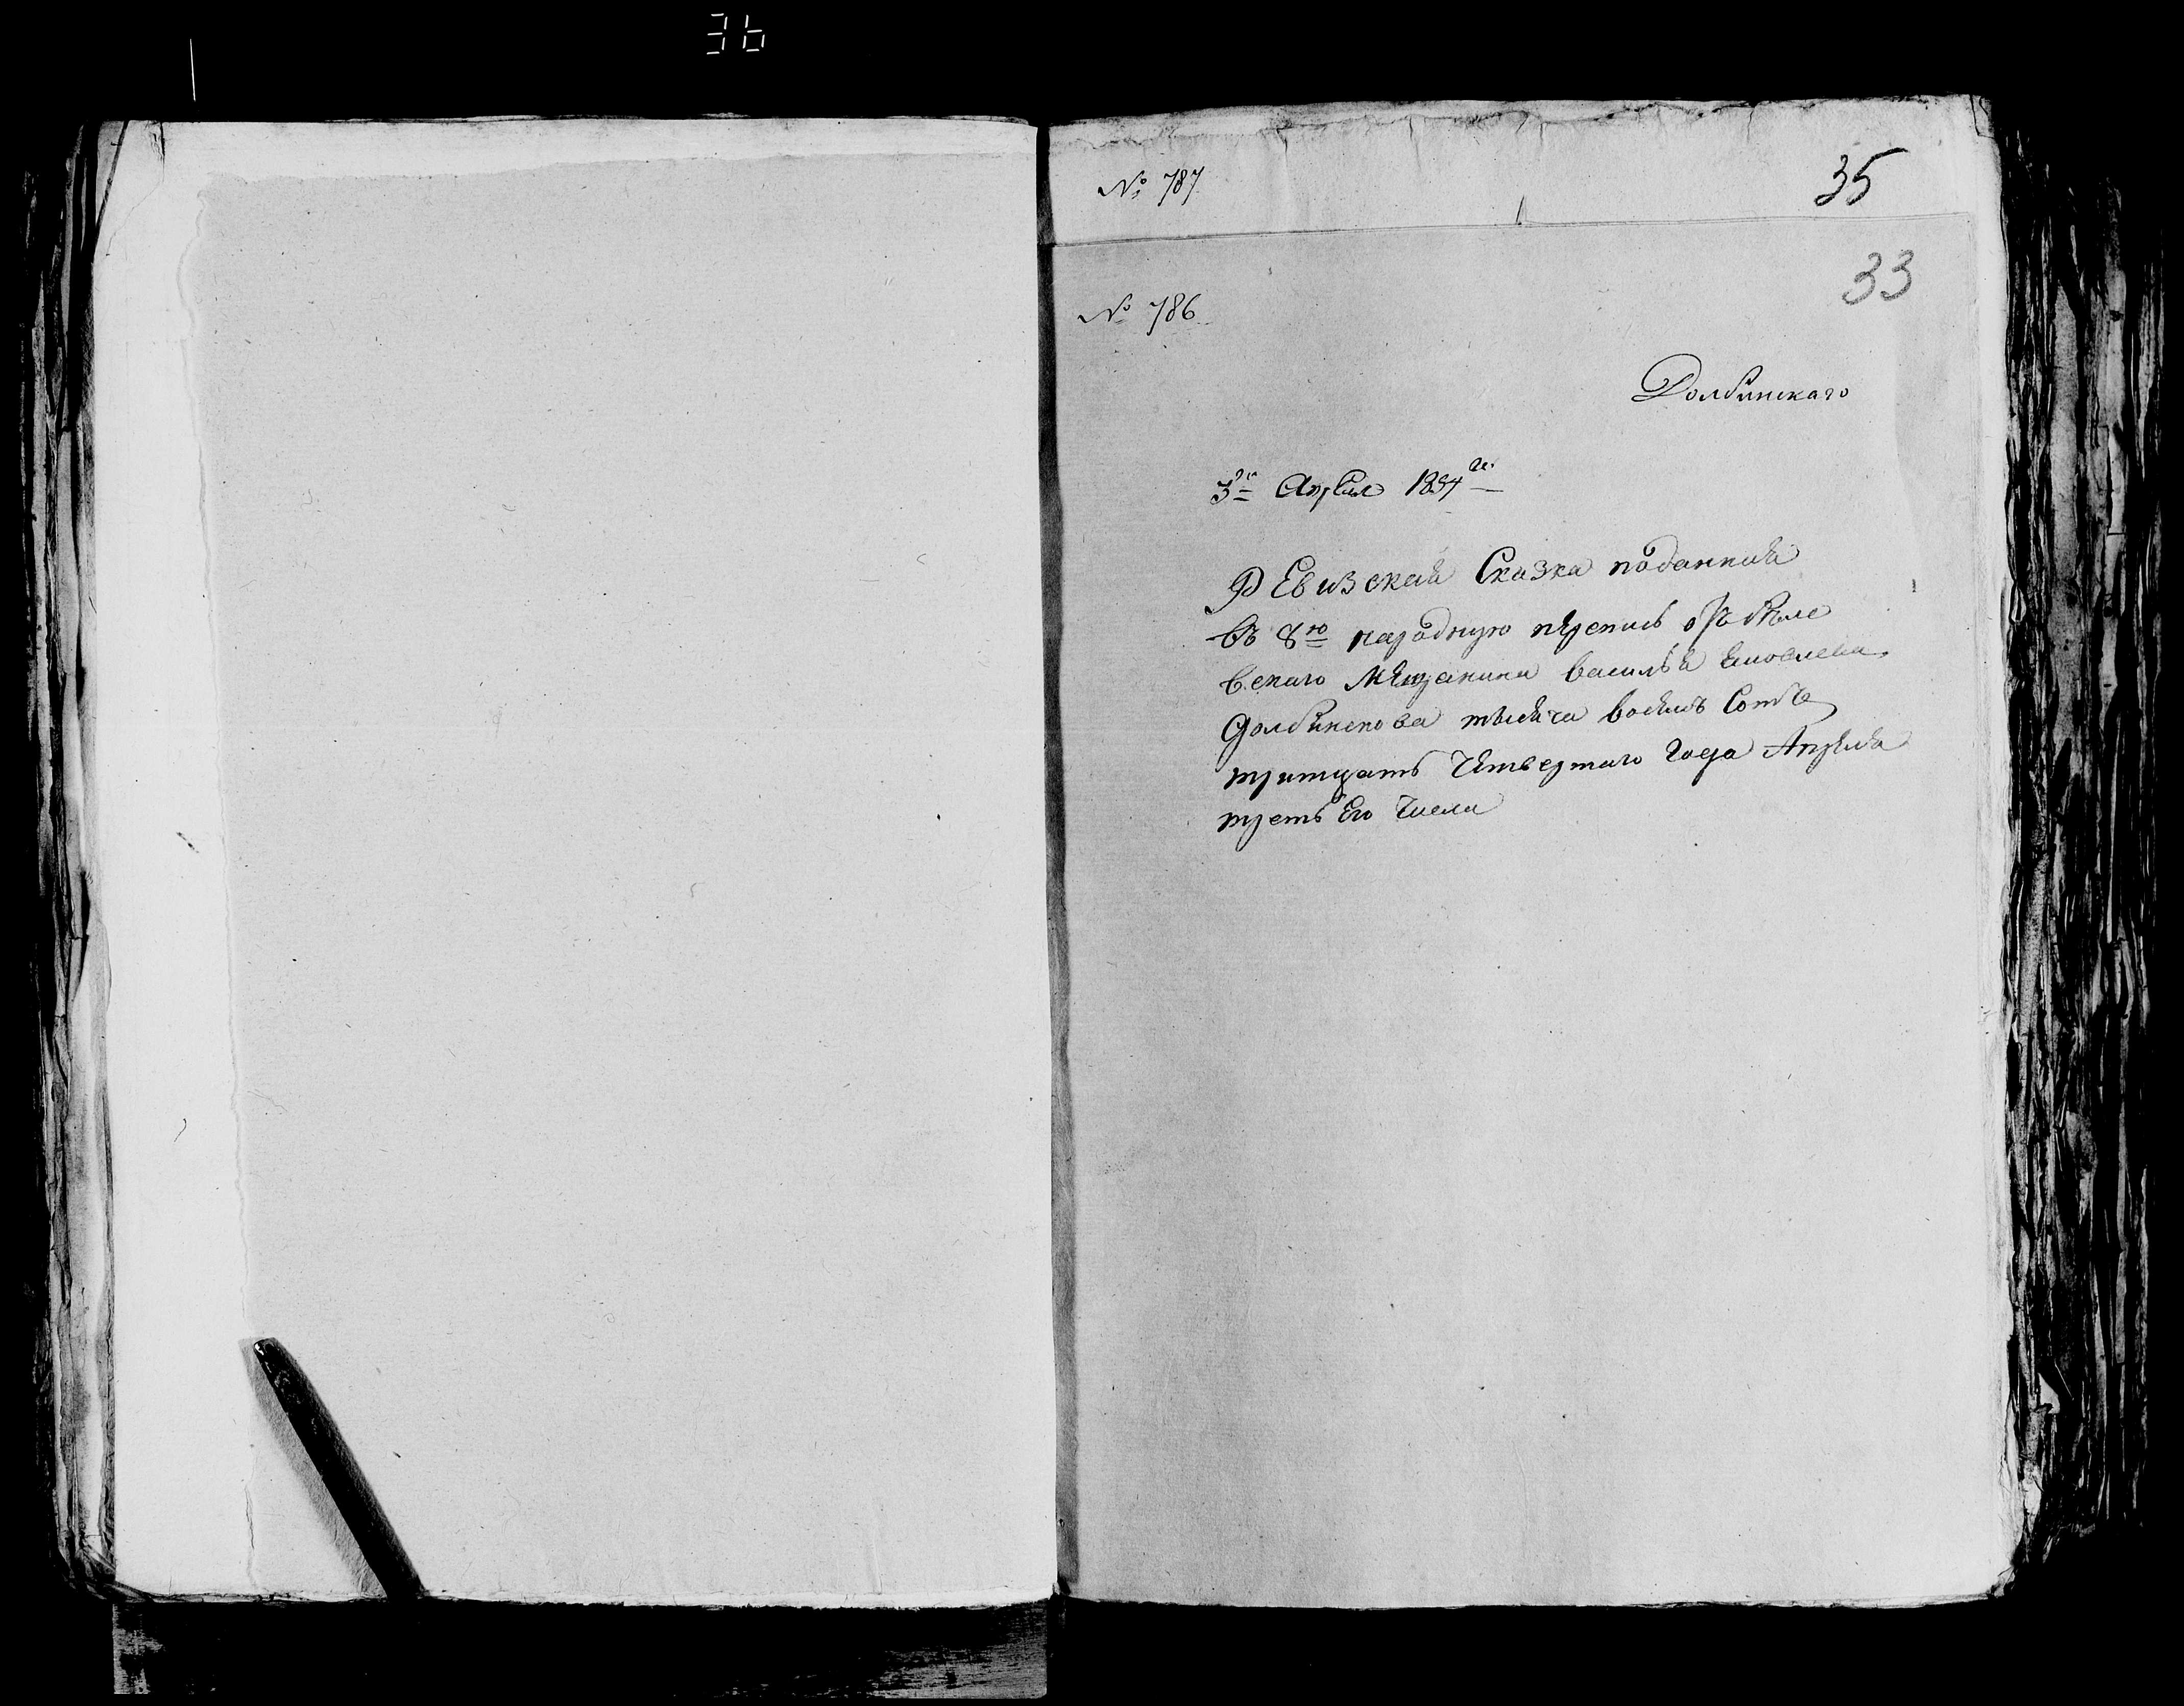 36
№ 787
35
33
№ 786
Долбинскаго
3го Апреля 1834 го
РЕвизская Сказка поданная
въ 8ю народную перепись
вскаго мещанина василья яковлева
Долбинскова тысяча восемь Сотъ
тритцать Четвертаго Года Апреля
третьЕго Числа